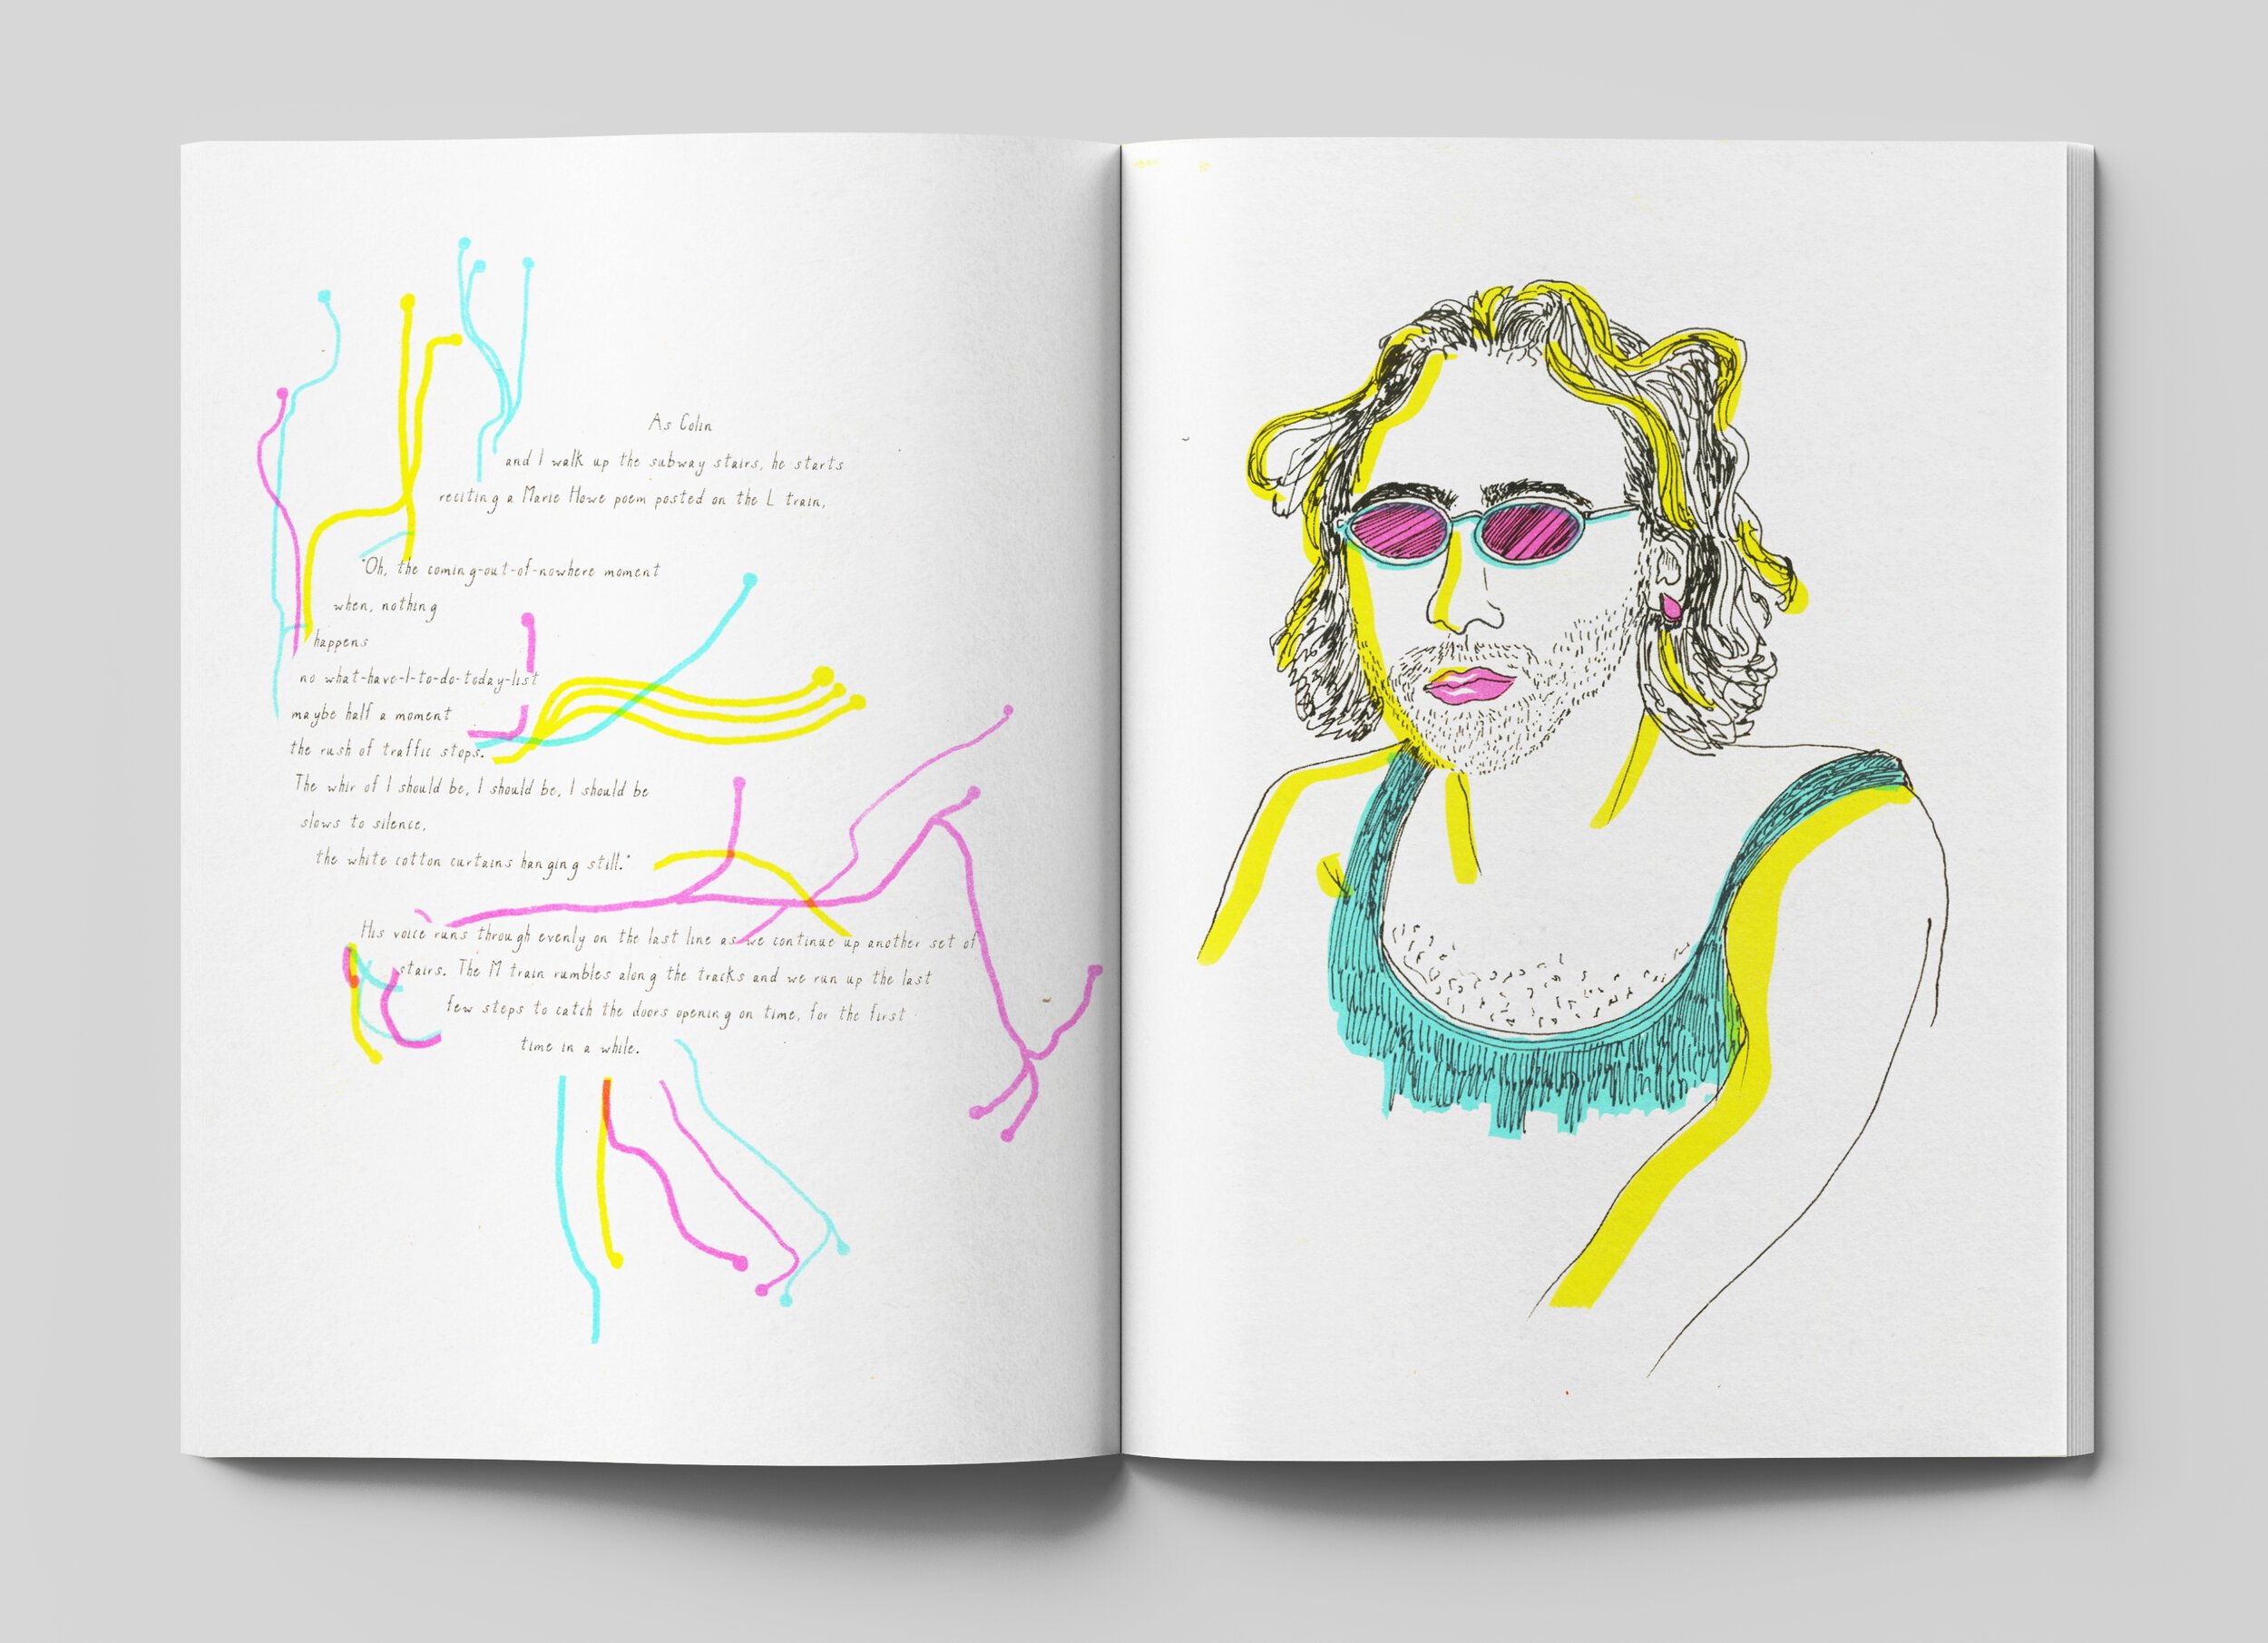 As Colin
and I walk up the subway stairs, he starts
reciting a Marie Howe poem posted on the L train,
"Oh, the coming-out-of-nowhere moment
when, nothing
happens
no what-have-I-to-do-today-list
maybe half a moment
the rush of traffic stops.
The whir of I should be, I should be, I should be
slows to silence,
the white cotton curtains hanging still."
His voice runs through evenly on the last line as we continue up another set of
stairs. The M train rumbles along the tracks and we run up the last
few steps to catch the doors opening on time, for the first
time in a while.